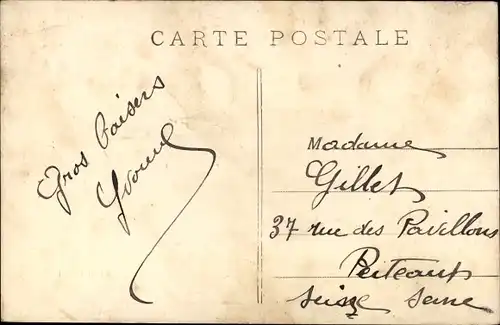 CARTE POSTALE
Gros baisers
Yvonne
Madame
Gillet
37 rue des Pavillons
Puteaux
Seine